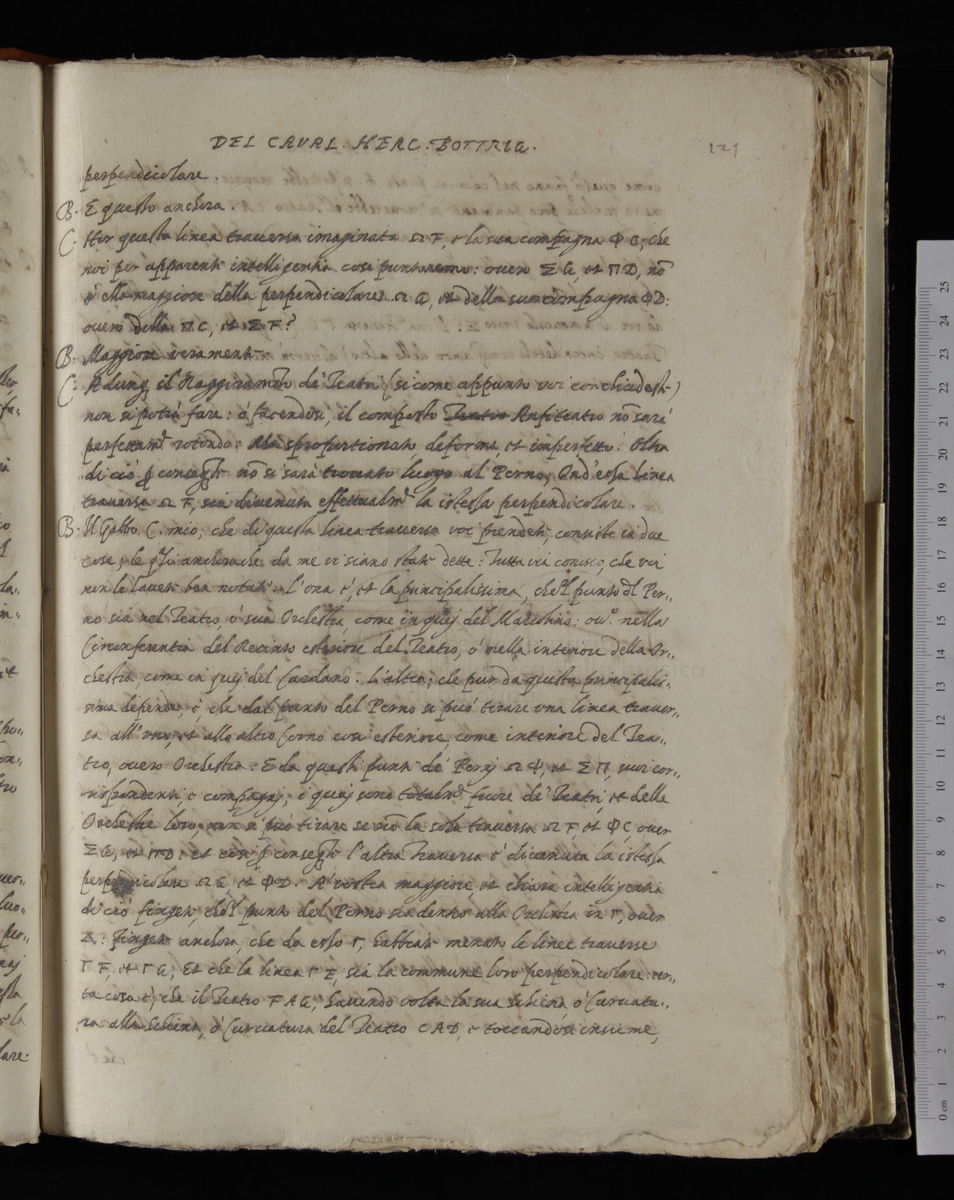 DEL CAVAL. HERC. BOTTRIG.
121
perpendicolare.
B. E questo anchora.
C. Hor questa linea traversa imaginata Ω F, e la sua compagna Φ C, che
noi per apparente intelligentia cosi puntaremo: overo Σ G, et Π D, nō
è ella maggiore della perpendicolare Ω G, et della sua compagna Φ D:
overo della Π C, et Σ F?
B. Maggiore veramente.
C. Adunq il Raggiramento dà Teatri (si come appunto voi conchiudeste)
non si potrà fare: ò facendosi, il composto Teatro Anfiteatro nō sarà
perfettamte rotondo: Ma sproportionato, deforme, et imperfetto. Oltra
di ciò p conseguente nō si sarà trovato luogo al Perno; Ond'essa linea
traversa Ω F, sia divenuta effettualmte la istessa perpendicolare.
B. Il Gabbo C. mio, che di questa linea traversa voi prendete, consiste in due
cose, le qli anchora che da me vi siano state dette: Tuttavia conosco, che voi
non le havete ben notate. L'una è, et la principalissima, che'l punto dl Per-
no sia nel Teatro, ò sua Orchestra, come in quei del Marcolino: ovo nella
Circonferentia del Recinto esteriore del Teatro, ò nella interiore della Or-
chestra come in quei del Cardano. L'altra; che pur da questa principalis-
sima depende, è, che dal punto del Perno si può tirare una linea traver-
sa all'uno, et allo altro Corno cosi esteriore, come interiore del Tea-
tro, overo Orchestra. E da questi punti de' Perni Ω Φ, et Σ Π, suoi cor-
rispondenti, e compagni, i quai sono totalmte fuore de' Teatri et delle
Orchestre loro, non si può tirare se nō la sola traversa Ω F et Φ C over
Σ G, et Π D: et cosi p conseguente l'altra Traversa è divenuta la istessa
perpendicolare Ω G, et Φ D. A' vostra maggiore et chiara intelligentia
di ciò fingete, che'l punto del Perno sia dentro alla Orchestra in Γ, over
Z: Fingete anchora, che da esso Γ, habbiate menate le linee traverse
Γ F, et Γ G; Et che la linea Γ Z, sia la commune loro perpendicolare: cer-
ta cosa è, che il Teatro F A G, havendo volta la sua schiena, ò Curvatu-
ra alla schiena, ò Curvatura del Teatro C A D, e toccandosi insieme,
che